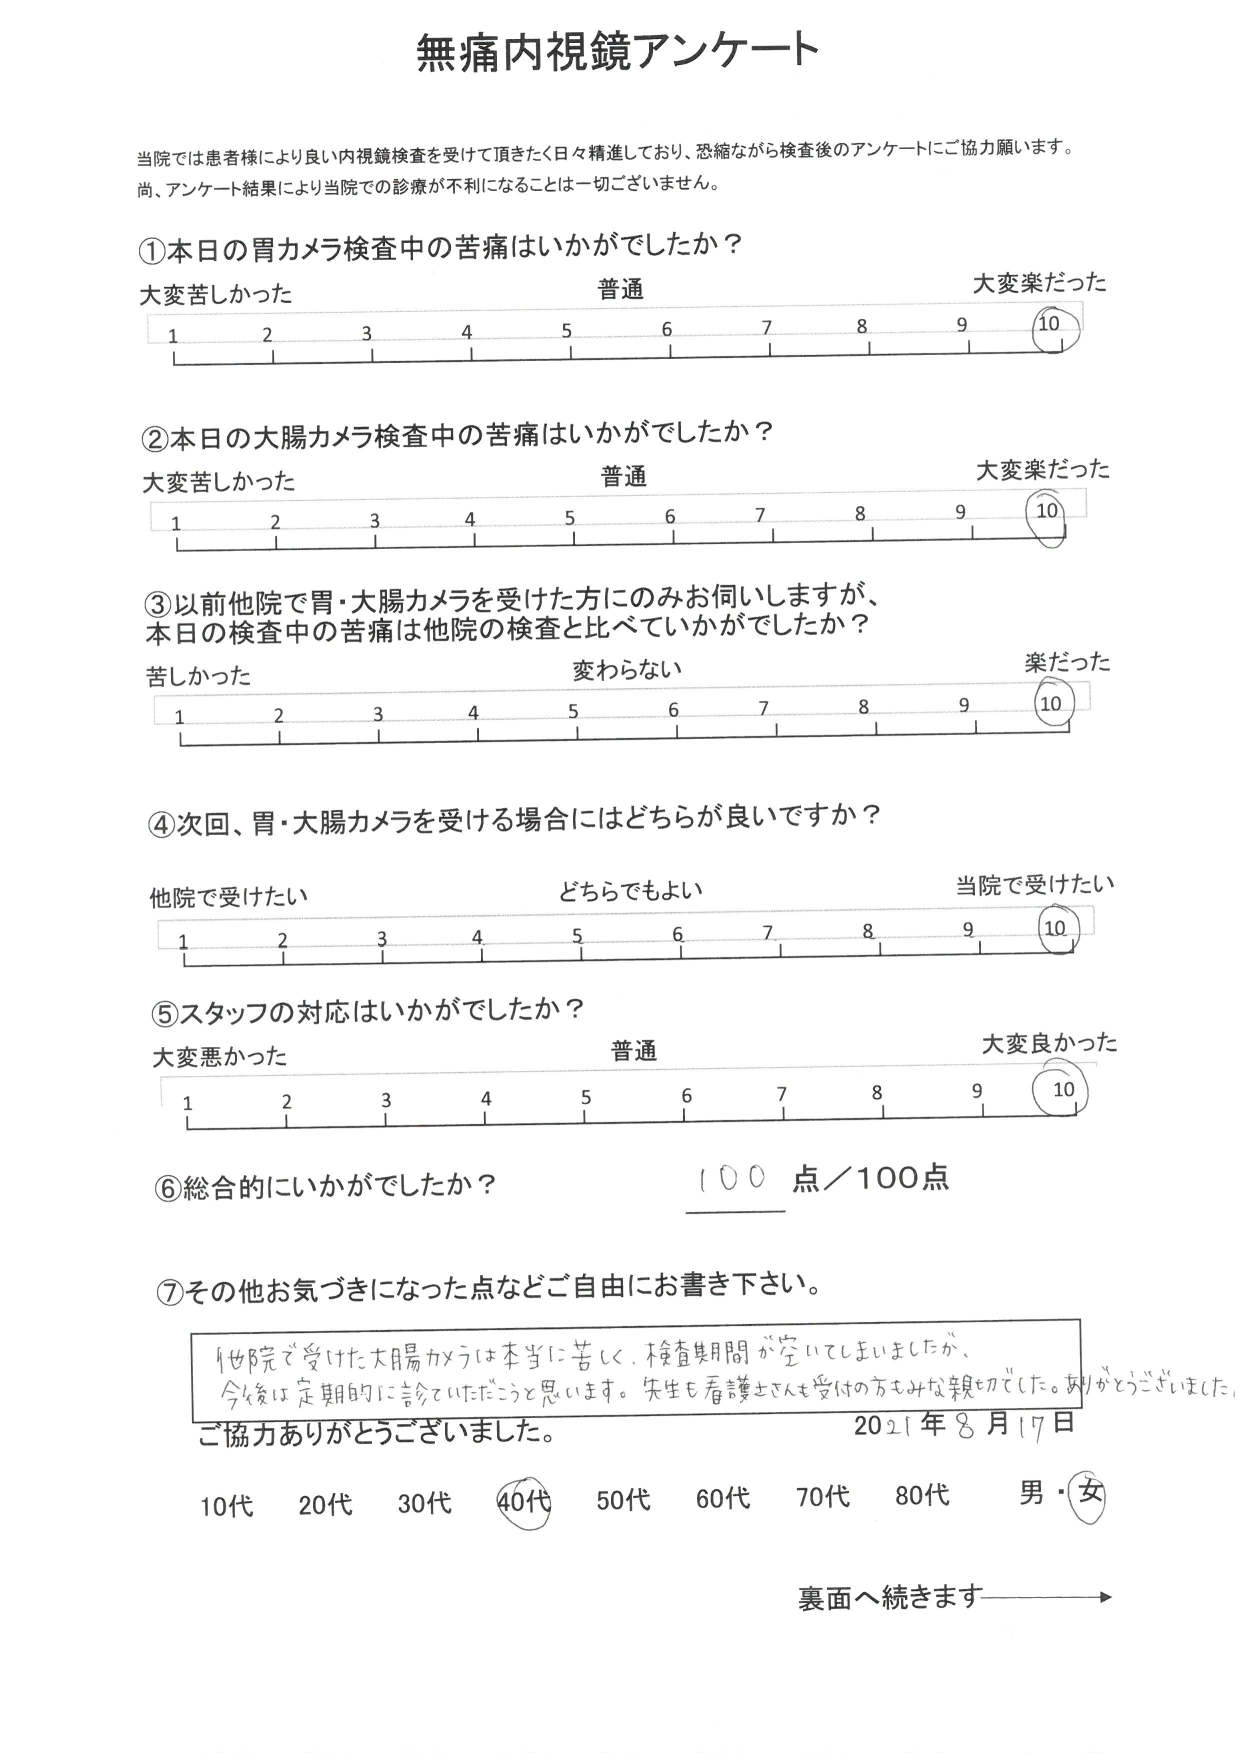 無痛内視鏡アンケート
当院では患者様により良い内視鏡検査を受けて頂きたく日々精進しており、恐縮ながら検査後のアンケートにご協力願います。
尚、アンケート結果により当院での診療が不利になることは一切ございません。
①本日の胃カメラ検査中の苦痛はいかがでしたか？
大変苦しかった 普通 大変楽だった
1 2 3 4 5 6 7 8 9 10
②本日の大腸カメラ検査中の苦痛はいかがでしたか？
大変苦しかった 普通 大変楽だった
1 2 3 4 5 6 7 8 9 10
③以前他院で胃・大腸カメラを受けた方にのみお伺いしますが、
本日の検査中の苦痛は他院の検査と比べていかがでしたか？
苦しかった 変わらない 楽だった
1 2 3 4 5 6 7 8 9 10
④次回、胃・大腸カメラを受ける場合にはどちらが良いですか？
他院で受けたい どちらでもよい 当院で受けたい
1 2 3 4 5 6 7 8 9 10
⑤スタッフの対応はいかがでしたか？
大変悪かった 普通 大変良かった
1 2 3 4 5 6 7 8 9 10
⑥総合的にいかがでしたか？ 100 点／100点
⑦その他お気づきになった点などご自由にお書き下さい。
他院で受けた大腸カメラは本当に苦しく、検査期間が空いてしまいましたが、
今後は定期的に診ていただこうと思います。先生も看護士さんも受付の方もみな親切でした。ありがとうございました。
ご協力ありがとうございました。 2021年8月17日
10代 20代 30代 40代 50代 60代 70代 80代 男・女
裏面へ続きます